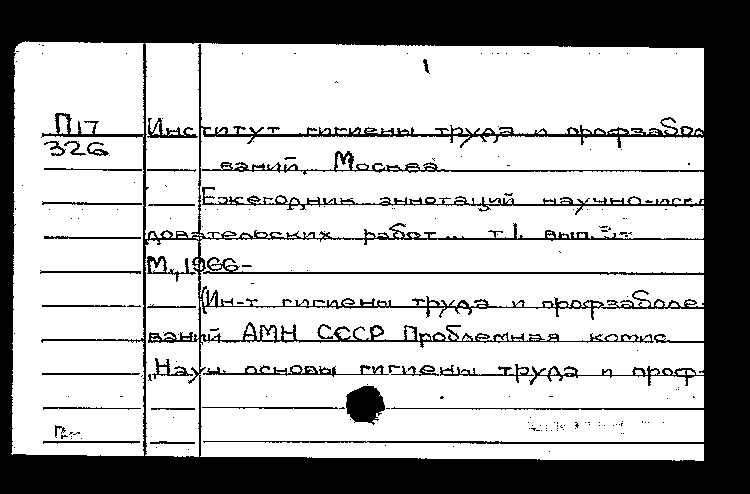 1
П17 Институт гигиены труда и профзаболе
326
ваний, Москва.
Ежегодник аннотаций научно-иссл
довательских работ... т 1. вып.
М., 1966-
(Ин-т гигиены труда и профзаболе-
ваний АМН СССР Проблемная комис.
„Науч. основы гигиены труда и проф-